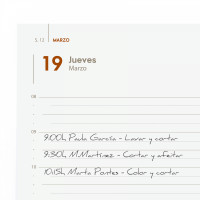 S. 12 MARZO
19 Jueves
Marzo
08
09
9:00h. Paula García - Lavar y cortar
9:30h. M.Martínez - Cortar y afeitar
10
10:15h. Marta Pontes - Color y cortar